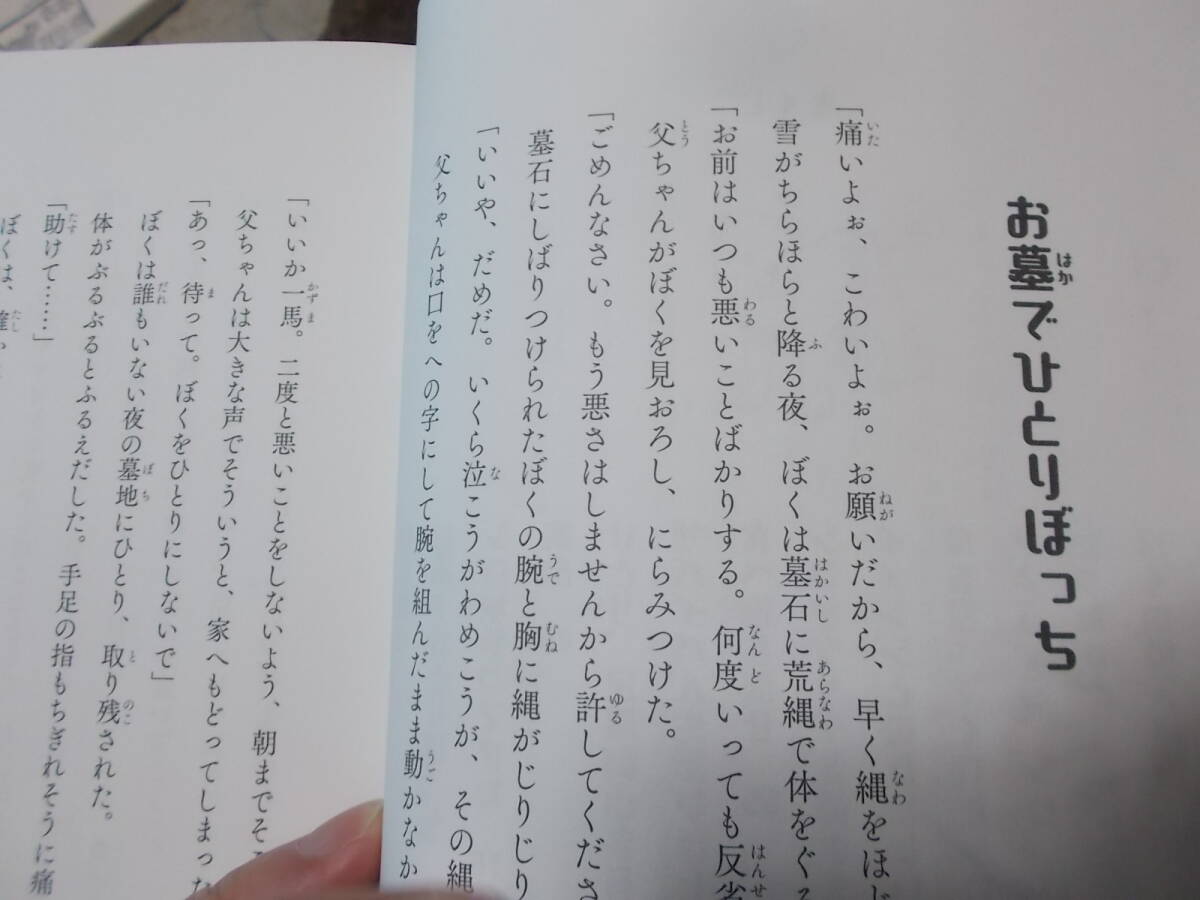 お墓でひとりぼっち
「痛いよぉ、こわいよぉ。お願いだから、早く縄をほど
雪がちらほらと降る夜、ぼくは墓石に荒縄で体をぐる
「お前はいつも悪いことばかりする。何度いっても反省
父ちゃんがぼくを見おろし、にらみつけた。
「ごめんなさい。もう悪さはしませんから許してくださ
墓石にしばりつけられたぼくの腕と胸に縄がじりじり
「いいや、だめだ。いくら泣こうがわめこうが、その縄
父ちゃんは口をへの字にして腕を組んだまま動かなか
「いいか一馬。二度と悪いことをしないよう、朝までそこ
父ちゃんは大きな声でそういうと、家へもどってしまった
「あっ、待って。ぼくをひとりにしないで」
ぼくは誰もいない夜の墓地にひとり、取り残された。
体がぶるぶるとふるえだした。手足の指もちぎれそうに痛
「助けて……」
ぼくは、